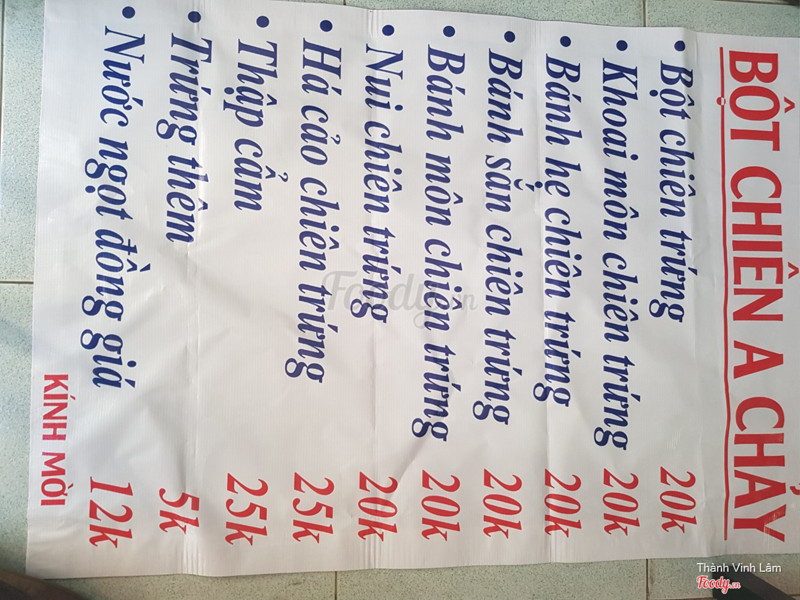 BỘT CHIÊN A CHẢY
• Bột chiên trứng 20k
• Khoai môn chiên trứng 20k
• Bánh hẹ chiên trứng 20k
• Bánh sắn chiên trứng 20k
• Bánh môn chiên trứng 20k
• Nui chiên trứng 20k
• Há cảo chiên trứng 25k
• Thập cẩm 25k
• Trứng thêm 5k
• Nước ngọt đồng giá 12k
KÍNH MỜI
Foody.vn
Thành Vinh Lâm
Foody.vn